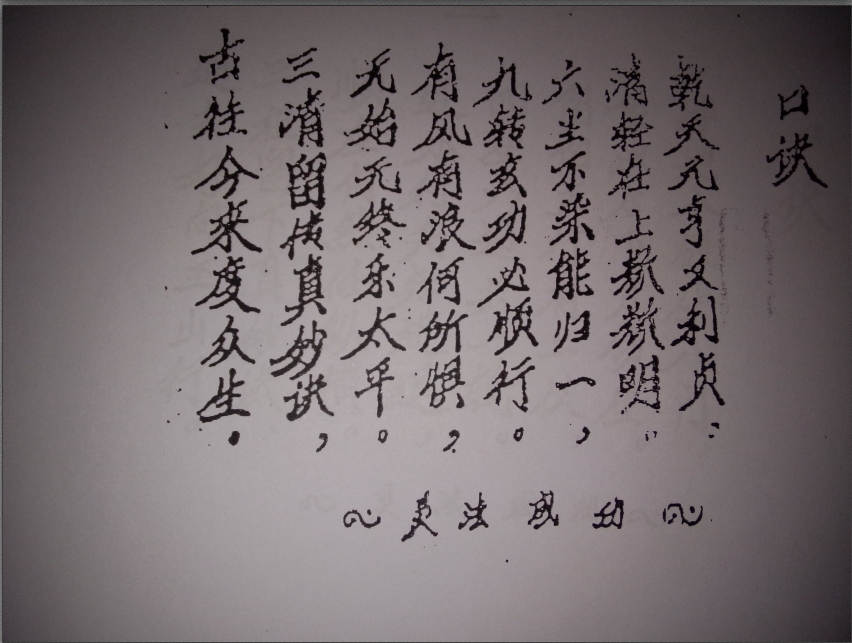 口诀
乾天元亨又利贞:
清轻在上明。
六尘不染能归一,
九转玄功必顺行。
有风有浪何所惧,
无始无终乐太平。
三清留传真妙诀,
古往今来度众生.
灵法成功